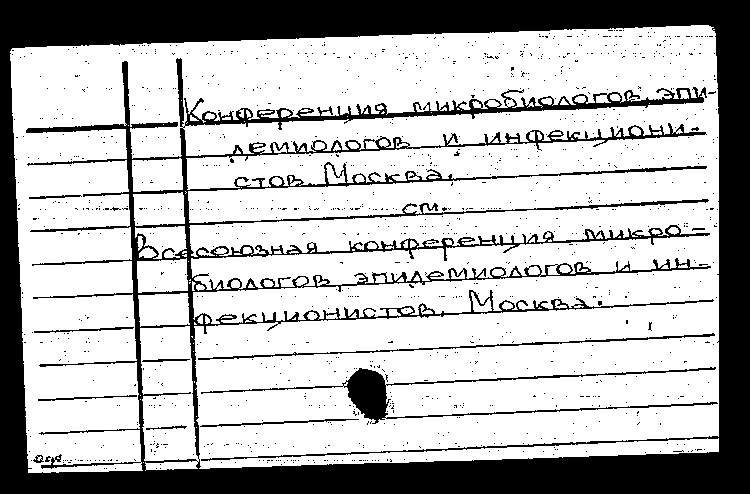 Конференция микробиологов, эпи-
демиологов и инфекциони-
стов. Москва.
см.
Всесоюзная конференция микро-
биологов, эпидемиологов и ин-
фекционистов. Москва.